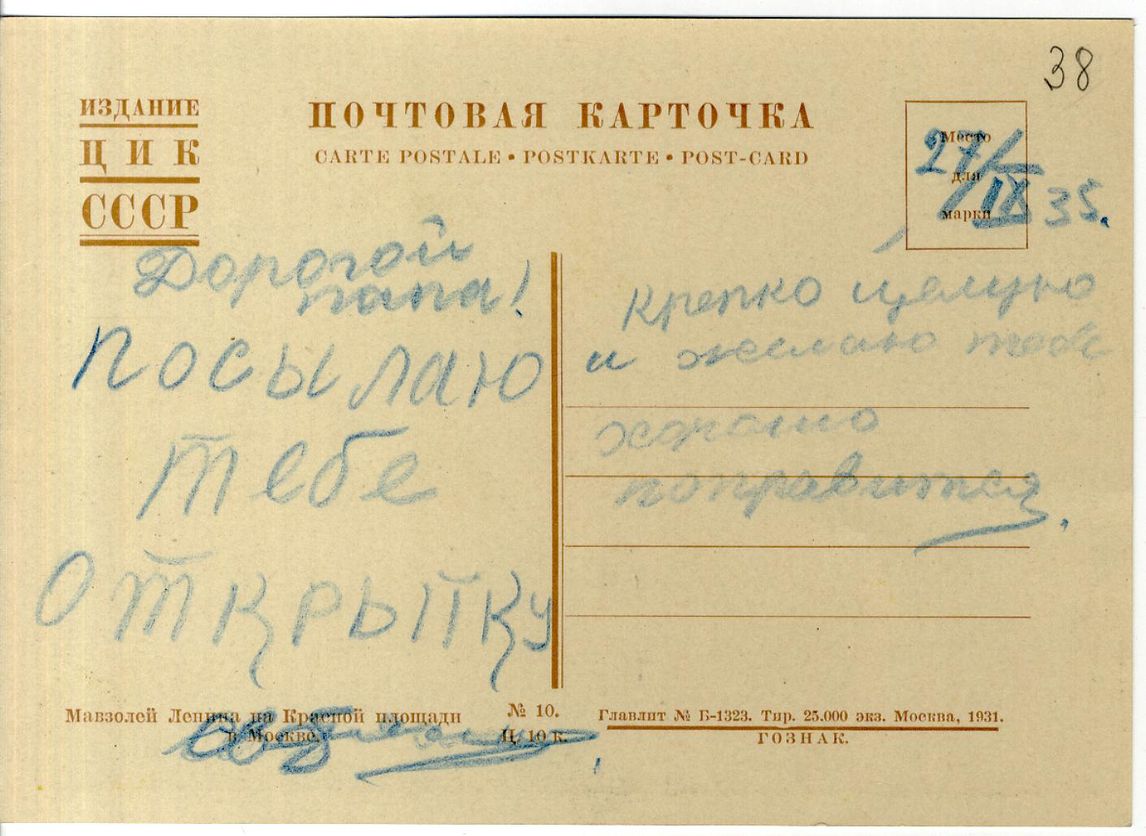 38
ИЗДАНИЕ
ЦИК
СССР
ПОЧТОВАЯ КАРТОЧКА
CARTE POSTALE • POSTKARTE • POST-CARD
Место
для
марки
27/IX 35.
Дорогой
папа!
Посылаю
тебе
открытку
Крепко целую
и желаю тебе
хорошо
поправится.
Мавзолей Ленина на Красной площади
в Москве.
№ 10.
Ц. 10 к.
Главлит № Б-1323. Тир. 25.000 экз. Москва, 1931.
ГОЗНАК.